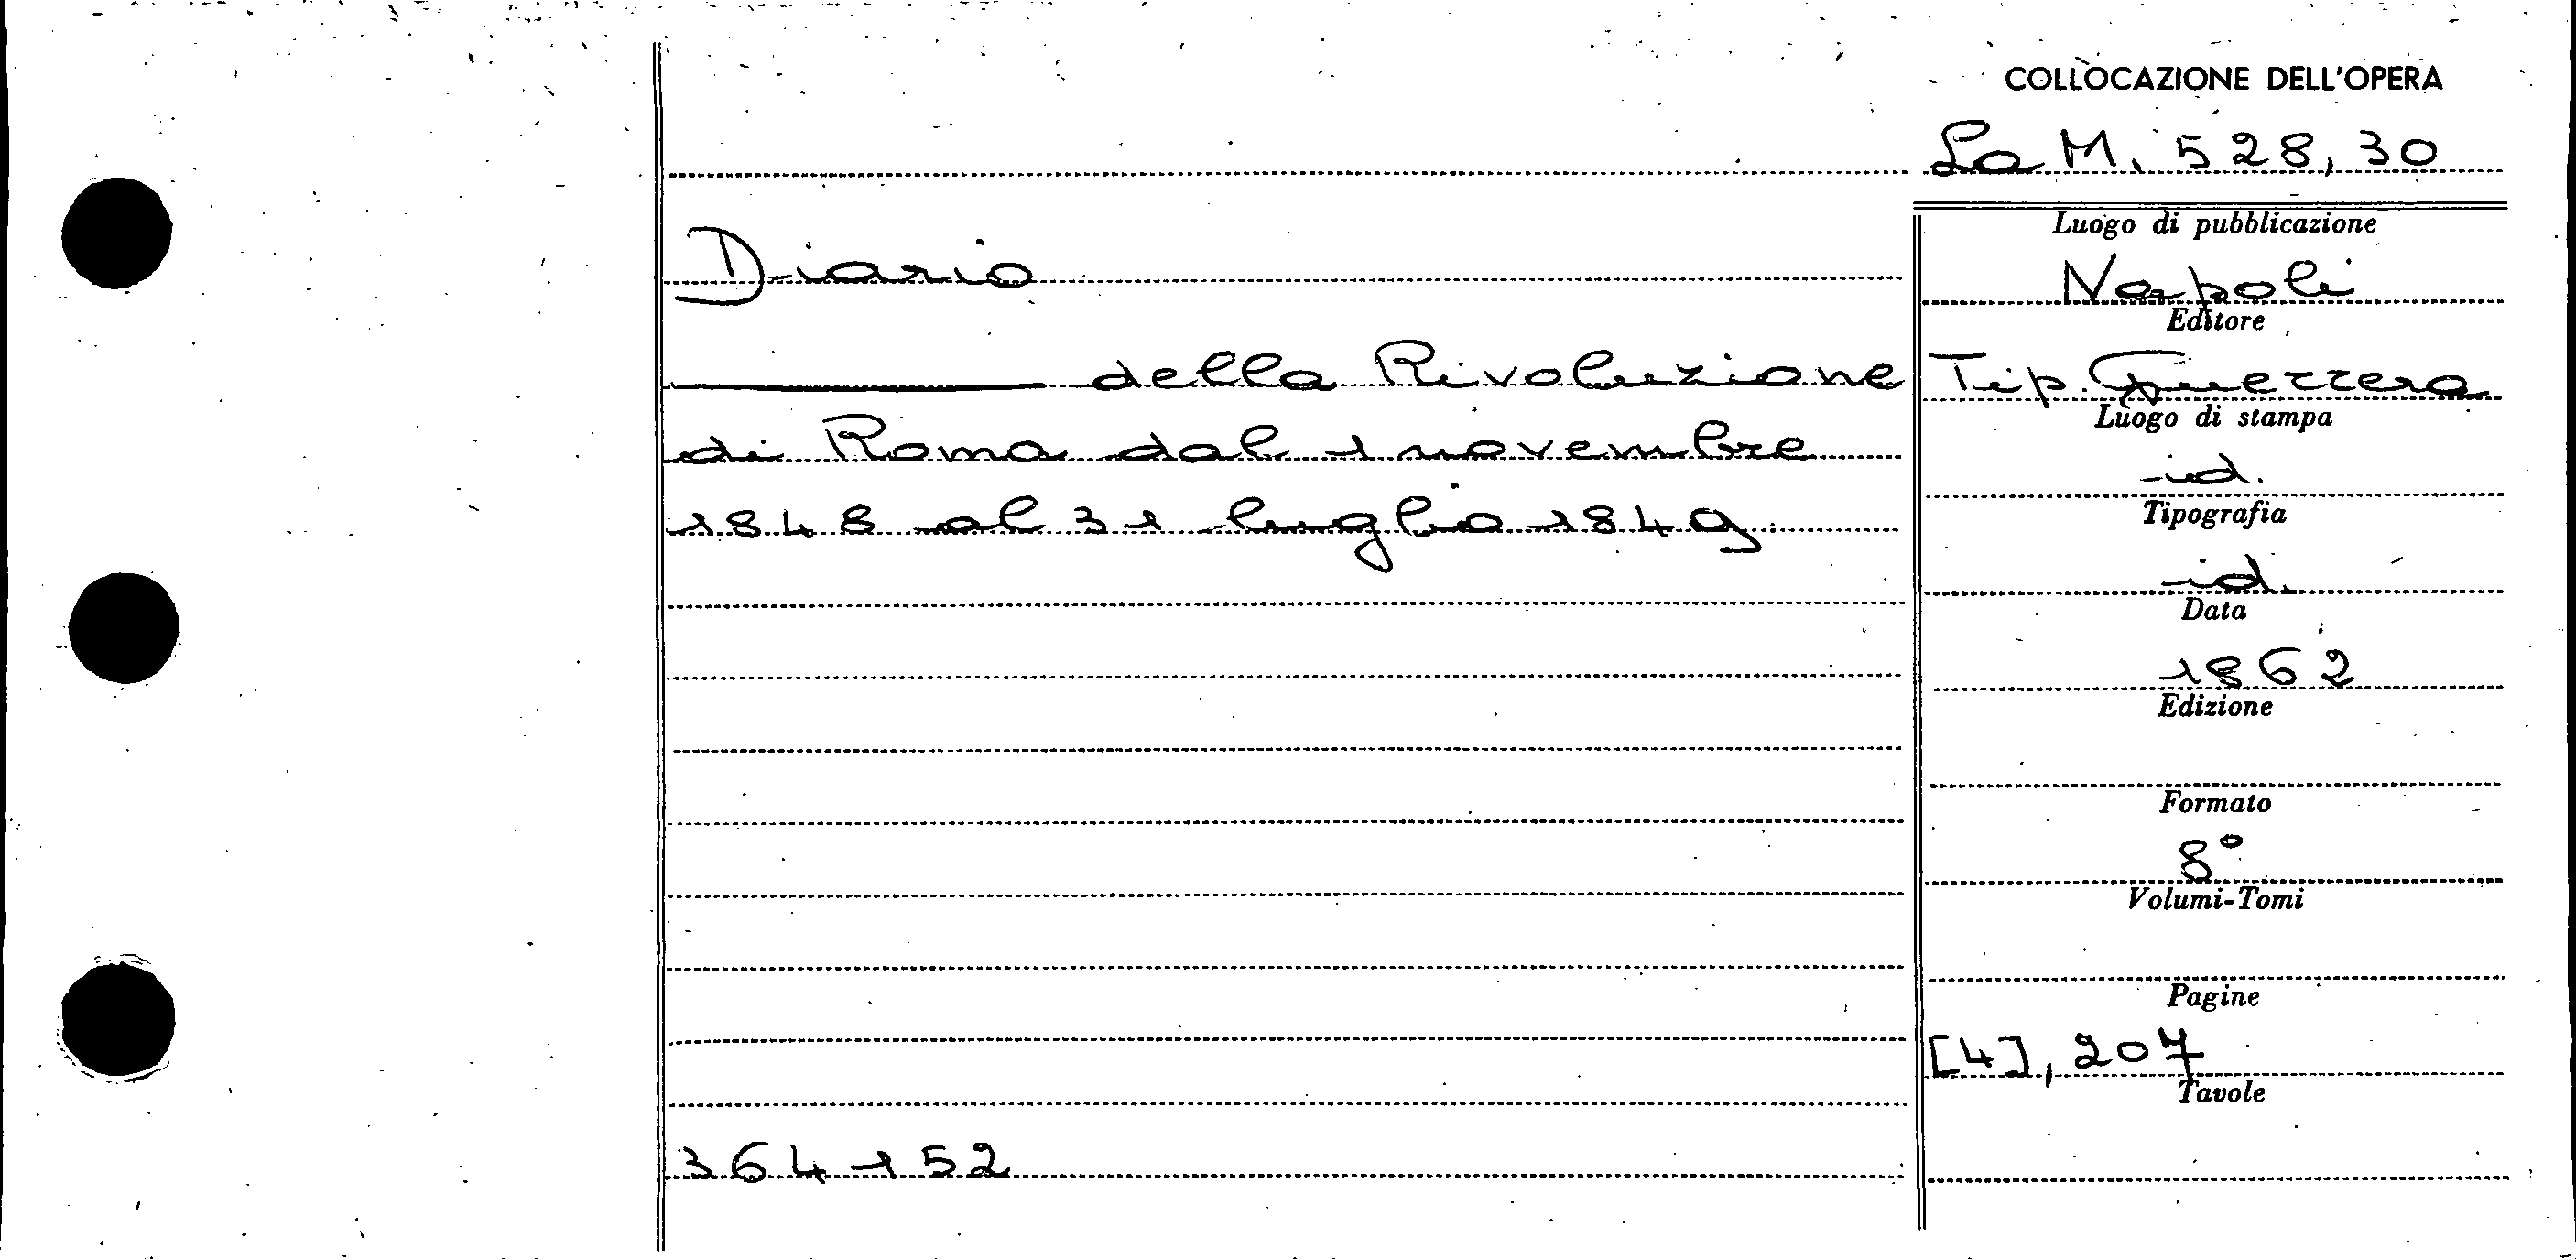 COLLOCAZIONE DELL'OPERA
La M. 528,30
Diario
della Rivoluzione
di Roma dal 1 novembre
1848 al 31 luglio 1849
364152
Luogo di pubblicazione
Napoli
Editore
Tip. Guerrera
Luogo di stampa
id.
Tipografia
id.
Data
1862
Edizione
Formato
8°
Volumi-Tomi
Pagine
[4], 207
Tavole